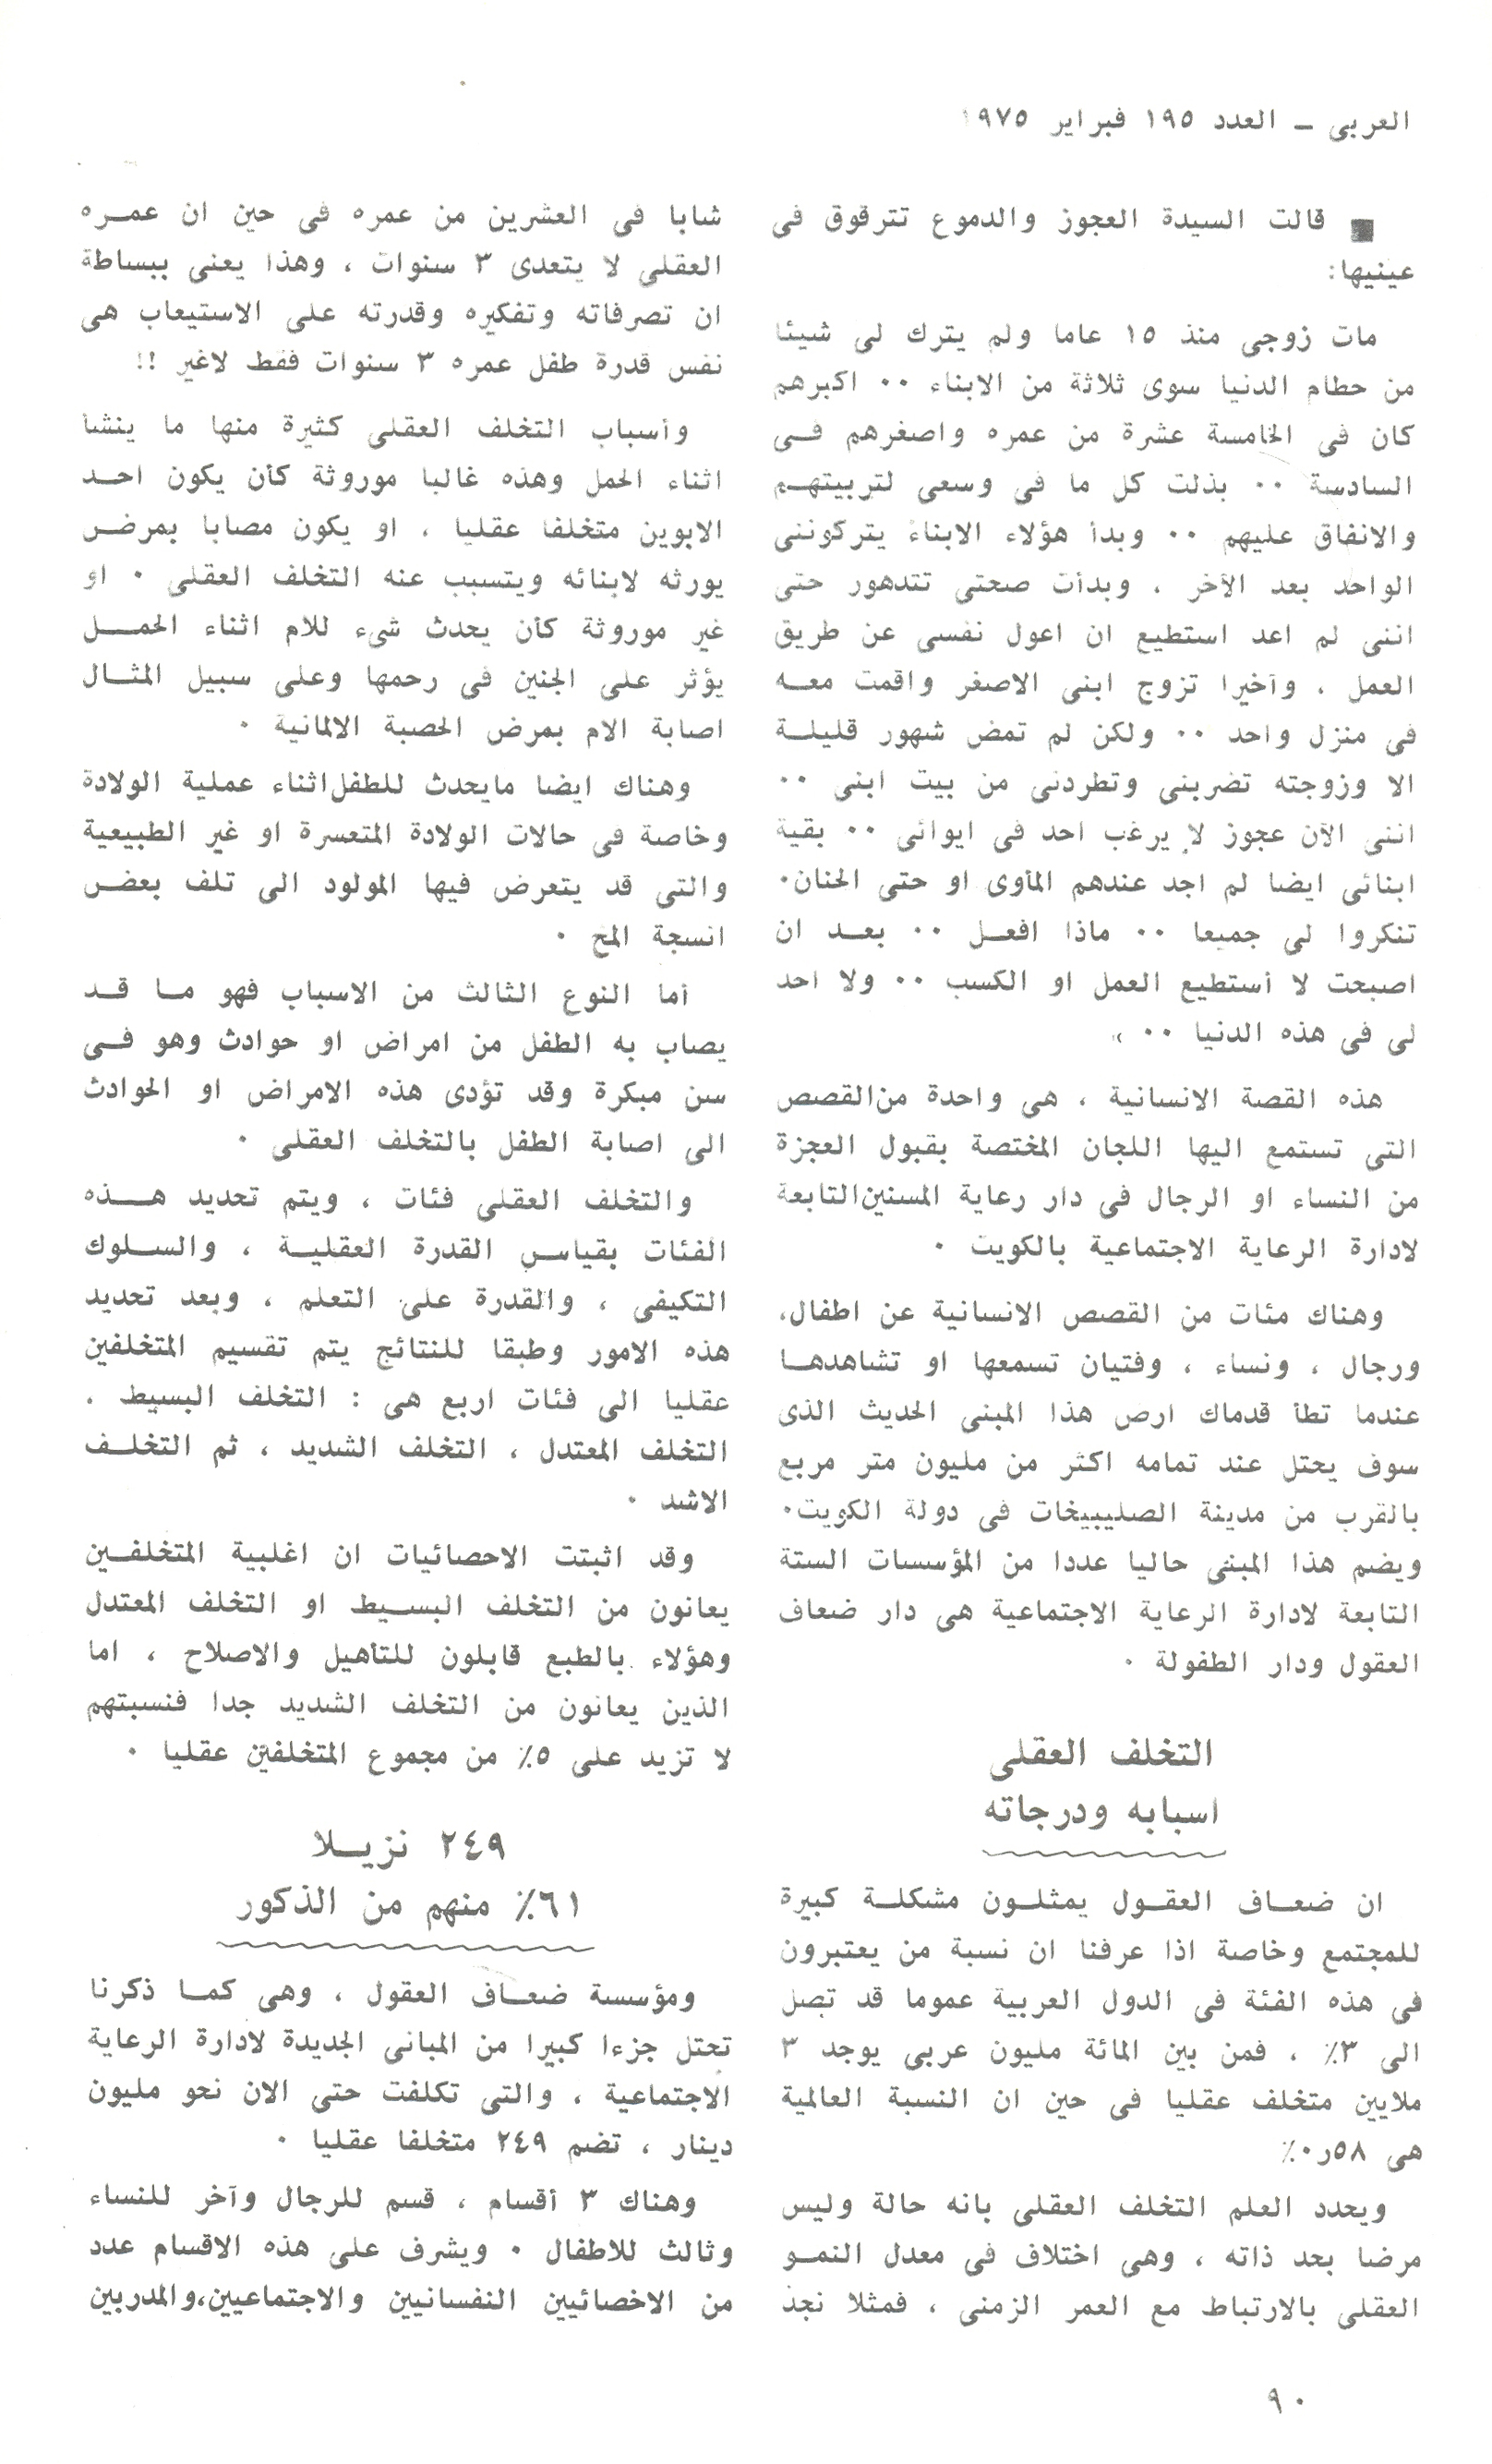 العربى ــ العدد ١٩٥ فبراير ١٩٧٥
■ قالت السيدة العجوز والدموع تترقوق فى
عينيها:
مات زوجى منذ ١٥ عاما ولم يترك لى شيئا
من حطام الدنيا سوى ثلاثة من الابناء ٠٠ اكبرهم
كان فى الخامسة عشرة من عمره واصغرهم فى
السادسة ٠٠ بذلت كل ما فى وسعى لتربيتهم
والانفاق عليهم ٠٠ وبدأ هؤلاء الابناء يتركوننى
الواحد بعد الآخر ، وبدأت صحتى تتدهور حتى
اننى لم اعد استطيع ان اعول نفسى عن طريق
العمل ، وأخيرا تزوج ابنى الاصغر واقمت معه
فى منزل واحد ٠٠ ولكن لم تمض شهور قليلة
الا وزوجته تضربنى وتطردنى من بيت ابنى ٠٠
اننى الآن عجوز لا يرغب احد فى ايوائى ٠٠ بقية
ابنائى ايضا لم اجد عندهم المأوى او حتى الحنان٠
تنكروا لى جميعا ٠٠ ماذا افعل ٠٠ بعد ان
اصبحت لا أستطيع العمل او الكسب ٠٠ ولا احد
لى فى هذه الدنيا ٠٠ »
هذه القصة الانسانية ، هى واحدة من القصص
التى تستمع اليها اللجان المختصة بقبول العجزة
من النساء او الرجال فى دار رعاية المسنين التابعة
لادارة الرعاية الاجتماعية بالكويت ٠
وهناك مئات من القصص الانسانية عن اطفال،
ورجال ، ونساء ، وفتيان تسمعها او تشاهدها
عندما تطأ قدماك ارض هذا المبنى الحديث الذى
سوف يحتل عند تمامه اكثر من مليون متر مربع
بالقرب من مدينة الصليبيخات فى دولة الكويت٠
ويضم هذا المبنى حاليا عددا من المؤسسات الستة
التابعة لادارة الرعاية الاجتماعية هى دار ضعاف
العقول ودار الطفولة ٠
التخلف العقلى
اسبابه ودرجاته
ان ضعاف العقول يمثلون مشكلة كبيرة
للمجتمع وخاصة اذا عرفنا ان نسبة من يعتبرون
فى هذه الفئة فى الدول العربية عموما قد تصل
الى ٣٪ ، فمن بين المائة مليون عربى يوجد ٣
ملايين متخلف عقليا فى حين ان النسبة العالمية
هى ٥٨ر٠٪
ويحدد العلم التخلف العقلى بانه حالة وليس
مرضا بحد ذاته ، وهى اختلاف فى معدل النمو
العقلى بالارتباط مع العمر الزمنى ، فمثلا نجد
شابا فى العشرين من عمره فى حين ان عمره
العقلى لا يتعدى ٣ سنوات ، وهذا يعنى ببساطة
ان تصرفاته وتفكيره وقدرته على الاستيعاب هى
نفس قدرة طفل عمره ٣ سنوات فقط لاغير !!
وأسباب التخلف العقلى كثيرة منها ما ينشأ
اثناء الحمل وهذه غالبا موروثة كأن يكون احد
الابوين متخلفا عقليا ، او يكون مصابا بمرض
يورثه لابنائه ويتسبب عنه التخلف العقلى ٠ او
غير موروثة كأن يحدث شىء للام اثناء الحمل
يؤثر على الجنين فى رحمها وعلى سبيل المثال
اصابة الام بمرض الحصبة الالمانية ٠
وهناك ايضا مايحدث للطفل اثناء عملية الولادة
وخاصة فى حالات الولادة المتعسرة او غير الطبيعية
والتى قد يتعرض فيها المولود الى تلف بعض
انسجة المخ ٠
أما النوع الثالث من الاسباب فهو ما قد
يصاب به الطفل من امراض او حوادث وهو فى
سن مبكرة وقد تؤدى هذه الامراض او الحوادث
الى اصابة الطفل بالتخلف العقلى ٠
والتخلف العقلى فئات ، ويتم تحديد هذه
الفئات بقياس القدرة العقلية ، والسلوك
التكيفى ، والقدرة على التعلم ، وبعد تحديد
هذه الامور وطبقا للنتائج يتم تقسيم المتخلفين
عقليا الى فئات اربع هى : التخلف البسيط ،
التخلف المعتدل ، التخلف الشديد ، ثم التخلف
الاشد ٠
وقد اثبتت الاحصائيات ان اغلبية المتخلفين
يعانون من التخلف البسيط او التخلف المعتدل
وهؤلاء بالطبع قابلون للتأهيل والاصلاح ، اما
الذين يعانون من التخلف الشديد جدا فنسبتهم
لا تزيد على ٥٪ من مجموع المتخلفين عقليا ٠
٢٤٩ نزيلا
٦١٪ منهم من الذكور
ومؤسسة ضعاف العقول ، وهى كما ذكرنا
تحتل جزءا كبيرا من المبانى الجديدة لادارة الرعاية
الاجتماعية ، والتى تكلفت حتى الان نحو مليون
دينار ، تضم ٢٤٩ متخلفا عقليا ٠
وهناك ٣ أقسام ، قسم للرجال وآخر للنساء
وثالث للاطفال ٠ ويشرف على هذه الاقسام عدد
من الاخصائيين النفسانيين والاجتماعيين،والمدربين
٩٠